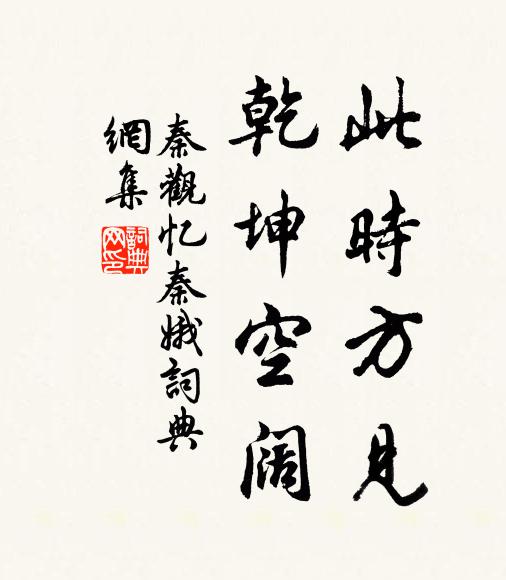 此時方見
乾坤空阔
秦觀忆秦娥詞典
網集
詞典
网印